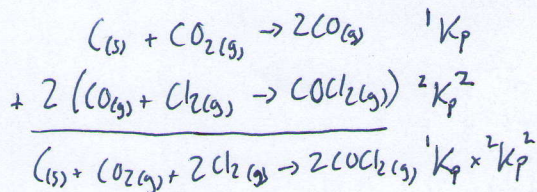 C(s) + CO₂(g) → 2CO(g) ¹Kₚ
+ 2 (CO(g) + Cl₂(g) → COCl₂(g)) ²Kₚ²
C(s) + CO₂(g) + 2Cl₂(g) → 2COCl₂(g) ¹Kₚ × ²Kₚ²